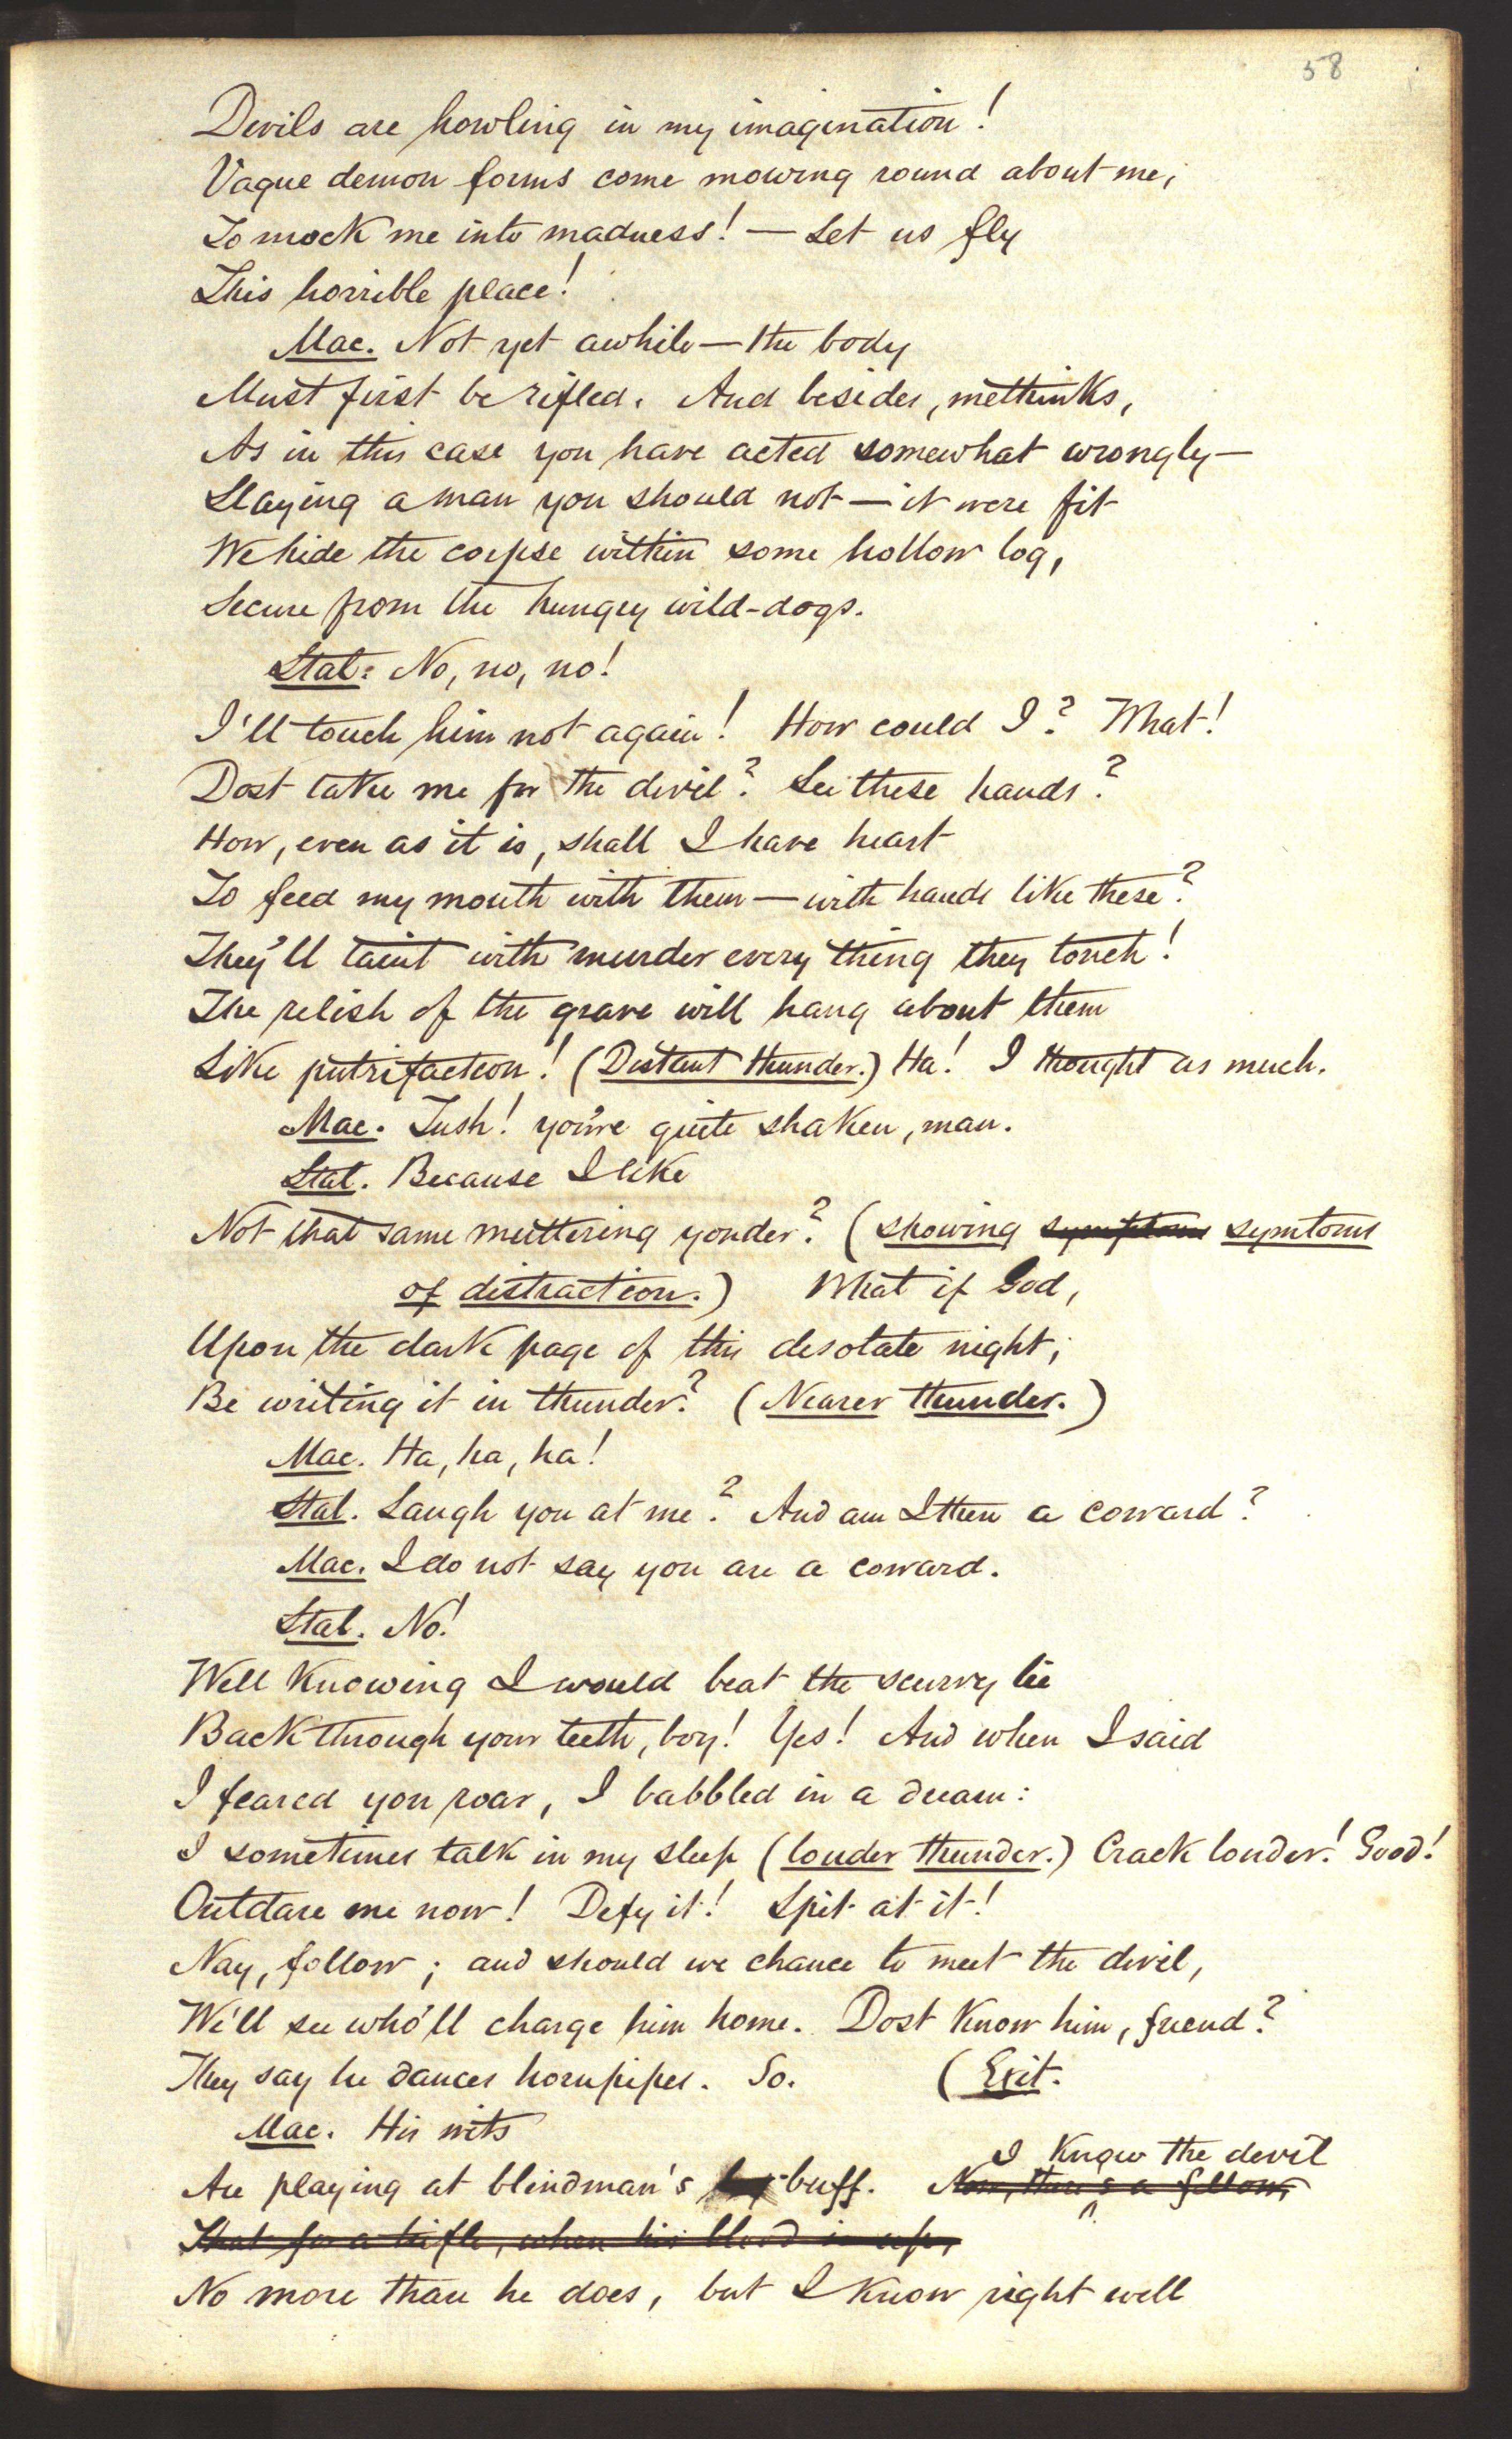 58
Devils are howling in my imagination!
Vague demon forms come mowing round about me,
To mock me into madness! — Let us fly
This horrible place!
Mac. Not yet awhile — the body
Must first be rifled. And besides, methinks,
As in this case you have acted somewhat wrongly —
Slaying a man you should not — it were fit
We hide the corpse within some hollow log,
Secure from the hungry wild-dogs.
Stal: No, no, no!
I'll touch him not again! How could I? What!
Dost take me for the devil? See these hands?
How, even as it is, shall I have heart
To feed my mouth with them — with hands like these?
They'll taint with murder every thing they touch!
The relish of the grave will hang about them
Like putrifaction! (Distant thunder.) Ha! I thought as much.
Mac. Tush! you're quite shaken, man.
Stal. Because I like
Not that same muttering yonder? (showing symptoms symtoms
of distraction.) What if God,
Upon the dark page of this desolate night,
Be writing it in thunder? (Nearer thunder.)
Mac. Ha, ha, ha!
Stal. Laugh you at me? And am I then a coward?
Mac. I do not say you are a coward.
Stal. No!
Well knowing I would beat the scurvy lie
Back through your teeth, boy! Yes! And when I said
I feared yon roar, I babbled in a dream:
I sometimes talk in my sleep (louder thunder.) Crack louder! Good!
Outdare me now! Defy it! Spit at it!
Nay, follow; and should we chance to meet the devil,
We'll see who'll charge him home. Dost know him, friend?
They say he dances hornpipes. So. (Exit.
Mac. His wits
I know the devil
Are playing at blindman's buff. Now, there's a fellow,
That for a trifle, when his blood is up,
No more than he does, but I know right well